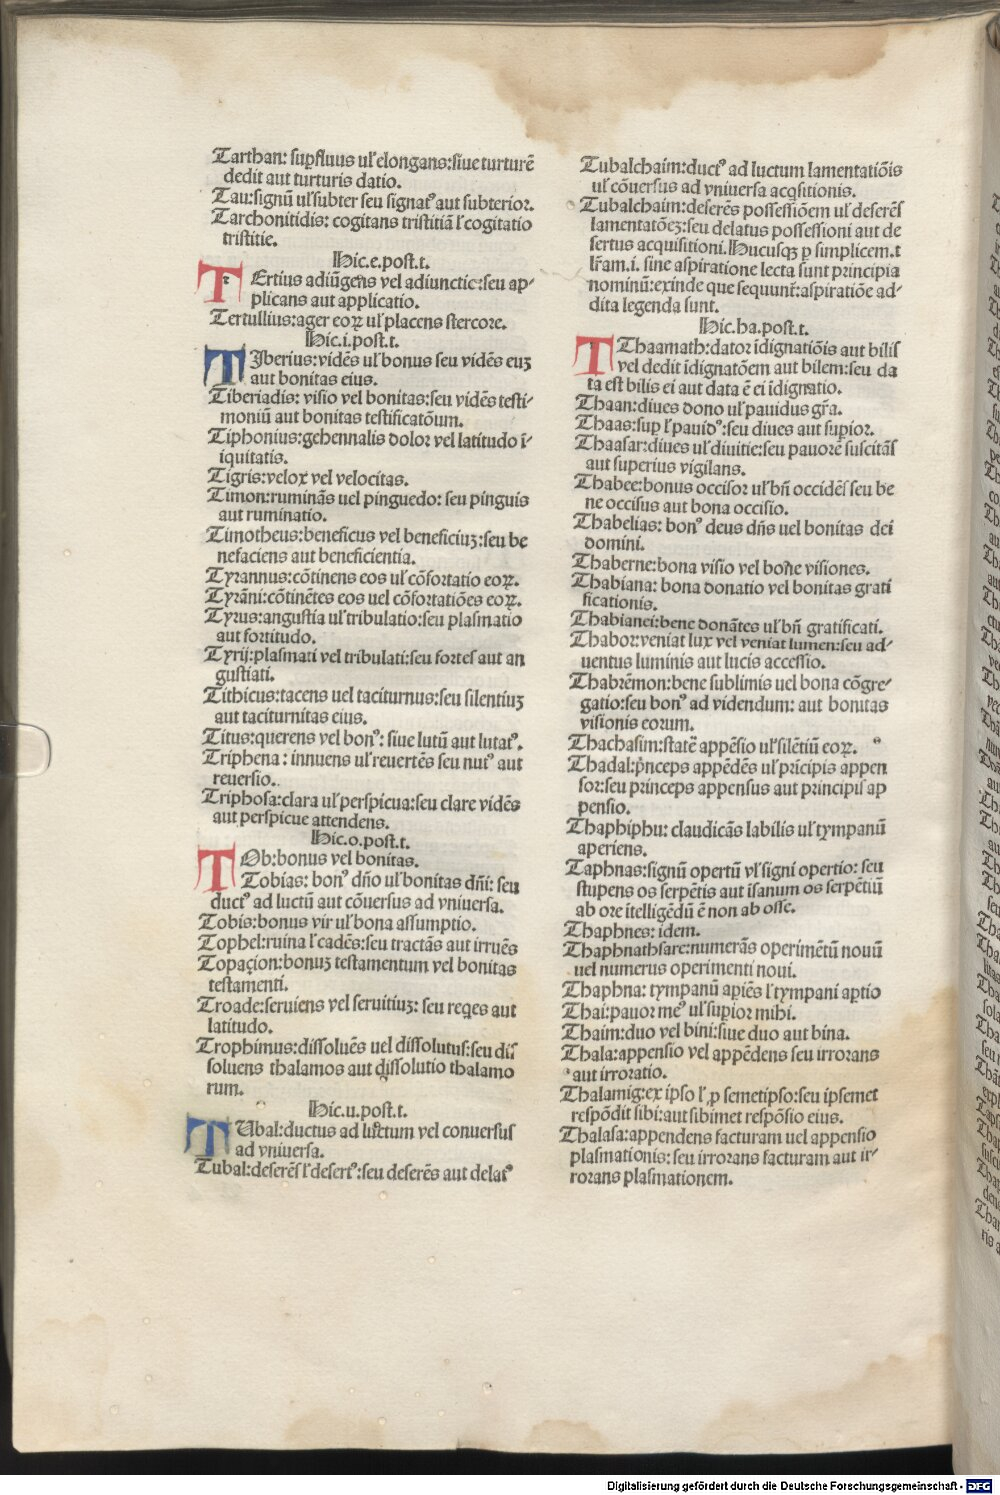 Tarthan: suꝑfluus ul̛ elongans:siue turturē
dedit aut turturis datio.
Tau:signū ul̛ subter seu signatꝰ aut subterior.
Tarchonitidis: cogitans tristitiā ł cogitatio
tristitie.
Hic.e.post.t.
TErtius adiūgens vel adiunctio:seu ap-
plicans aut applicatio.
Tertullius:ager eoꝝ ul̛ placens stercore.
Hic.i.post.t.
TJberius:vidēs ul̛ bonus seu vidēs euꝫ
aut bonitas eius.
Tiberiadis: visio vel bonitas:seu vidēs testi-
moniū aut bonitas testificatōum.
Tiphonius:gehennalis dolor vel latitudo ī-
iquitatis.
Tigris:velox vel velocitas.
Timon:ruminās uel pinguedo: seu pinguis
aut ruminatio.
Timotheus:beneficus vel beneficiuꝫ:seu be
nefaciens aut beneficientia.
Tyrannus:cōtinens eos ul̛ cōfortatio eoꝝ.
Tyrāni:cōtinētes eos uel cōfortatiōes eoꝝ.
Tyrus:angustia ul̛ tribulatio:seu plasmatio
aut fortitudo.
Tyrij:plasmati vel tribulati:seu fortes aut an
gustiati.
Tithicus:tacens uel taciturnus:seu silentiuꝫ
aut taciturnitas eius.
Titus:querens vel bonꝰ: siue lutū aut lutatꝰ.
Triphena: innuens ul̛ reuertēs seu nutꝰ aut
reuersio.
Triphosa:clara ul̛ perspicua:seu clare vidēs
aut perspicue attendens.
Hic.o.post.t.
TOb:bonus vel bonitas.
Tobias: bonꝰ dn̄o ul̛ bonitas dn̄i: seu
ductꝰ ad luctū aut cōuersus ad vniuersa.
Tobis:bonus vir ul̛ bona assumptio.
Tophel:ruina ł cadēs:seu tractās aut irruēs
Topaçion:bonuꝫ testamentum vel bonitas
testamenti.
Troade:seruiens vel seruitiuꝫ: seu reqes aut
latitudo.
Trophimus:dissoluēs uel dissolutus:seu dis
soluens thalamos aut dissolutio thalamo
rum.
Hic.u.post.t.
TUbal:ductus ad luctum vel conuersus
ad vniuersa.
Tubal:deserēs ł desertꝰ:seu deserēs aut delatꝰ
Tubalchaim:ductꝰ ad luctum lamentatiōis
ul̛ cōuersus ad vniuersa acqsitionis.
Tubalchaim:deserēs possessiōem ul̛ deserēs
lamentatōeꝫ:seu delatus possessioni aut de
sertus acquisitioni.Hucusqꝫ p simplicem.t
lr̄am.i. sine aspiratione lecta sunt principia
nominū:exinde que sequunt̄:aspiratiōe ad-
dita legenda sunt.
Hic.ha.post.t.
THaamath:dator īdignatiōis aut bilis
vel dedit īdignatōem aut bilem:seu da
ta est bilis ei aut data ē ei īdignatio.
Thaan:diues dono ul̛ pauidus gr̄a.
Thaas:sup ł pauidꝰ:seu diues aut suꝑior.
Thaasar:diues ul̛ diuitie:seu pauorē suscitās
aut superius vigilans.
Thabee:bonus occisor ul̛ bn̄ occidēs seu be
ne occisus aut bona occisio.
Thabelias: bonꝰ deus dn̄s uel bonitas dei
domini.
Thaberne:bona visio vel bone visiones.
Thabiana: bona donatio vel bonitas grati
ficationis.
Thabianei:bene donātes ul̛ bn̄ gratificati.
Thabor:veniat lux vel veniat lumen:seu ad-
uentus luminis aut lucis accessio.
Thabrēmon:bene sublimis uel bona cōgre-
gatio:seu bonꝰ ad videndum: aut bonitas
visionis eorum.
Thachasim:statē appēsio ul̛ silētiū eoꝝ.
Thadal:pͥnceps appēdēs ul̛ pͥncipis appen
sor:seu princeps appensus aut principis ap
pensio.
Thaphiphu: claudicās labilis ul̛ tympanū
aperiens.
Taphnas:signū opertū vl̛ signi opertio: seu
stupens os serpētis aut īsanum os serpētiū
ab ore ītelligēdū ē non ab osse.
Thaphnes: idem.
Thaphnathsare:numerās operimētū nouū
uel numerus operimenti noui.
Thaphna: tympanū apiēs ł tympani aꝑtio
Thai:pauor meꝰ ul̛ suꝑior mihi.
Thaim:duo vel bini:siue duo aut bina.
Thala:appensio vel appēdens seu irrorans
aut irroratio.
Thalamig:ex ipso ł ꝓ semetipso:seu ipsemet
respōdit sibi:aut sibimet respōsio eius.
Thalasa:appendens facturam uel appensio
plasmationis:seu irrorans facturam aut ir-
rorans plasmationem.
Digitalisierung gefördert durch die Deutsche Forschungsgemeinschaft - DFG